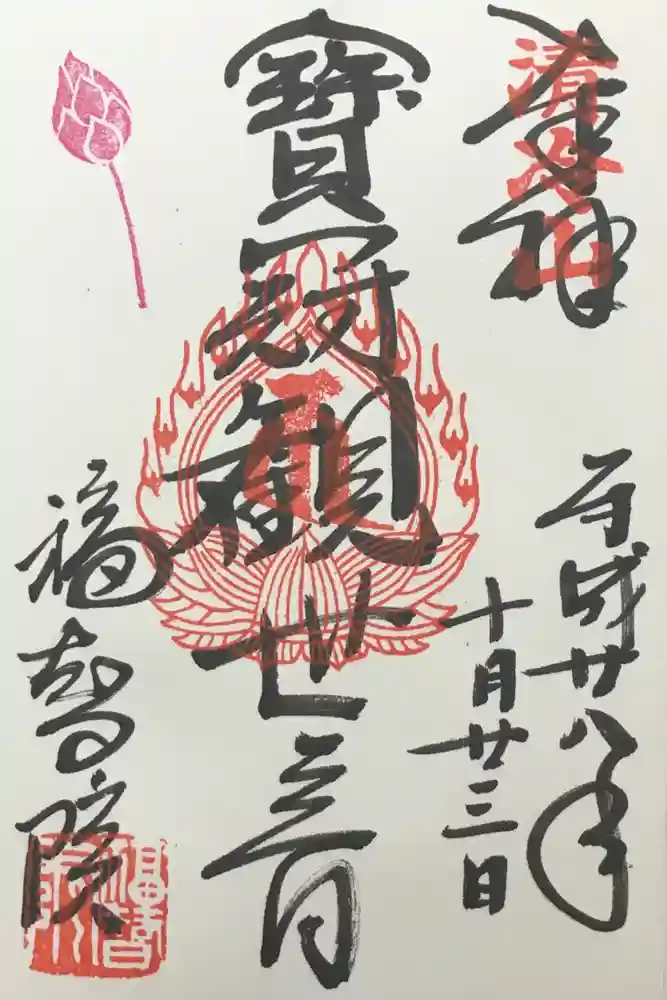 奉拝
清冷山
平成廿八年
十月廿三日
寶冠観世音
福智院